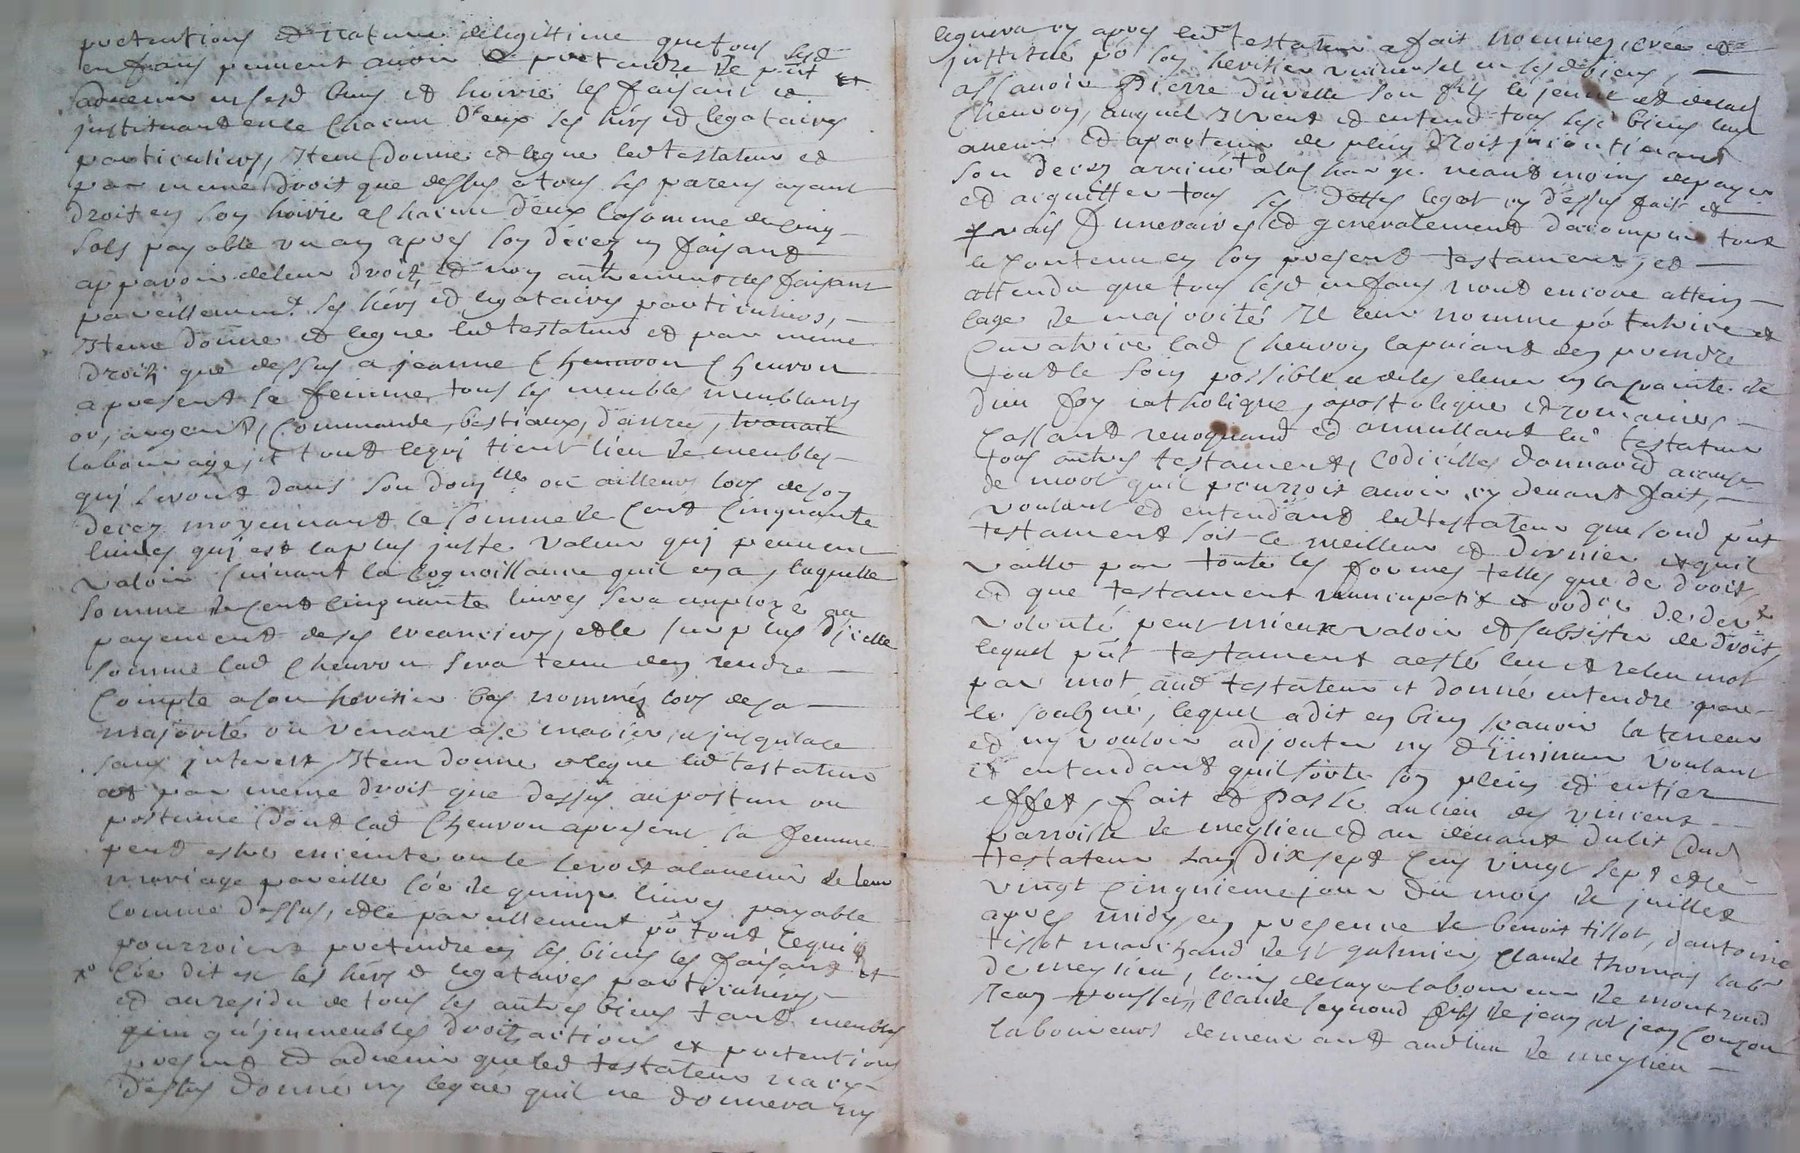 pretentions et nature de legittime que tous lesd
enfans peuvent avoir et pretendre de put et
advenir en sesd biens et hoirie les faisant et
instituant en ce chacun d'eux ses hérs et legataires
particuliers, Item donne et legue led testateur et
par meme droit que dessus a tous les parens ayant
droit en son hoirie a chacun d'eux la somme de cinq
sols payable un an apres son décez en faisant
apparoir de leur droit et non autrement les faisant
pareillement ses hérs et legataires particuliers,
Item donne et legue led testateur et par meme
droit que dessus a jeanne Chenvron
a present sa femme tous les meubles meublants
or, argent, commande, bestiaux, danree,
labourage, et tout ce qui tient lieu de meubles
qui seront dans son domlle ou ailleurs lors de son
decez moyennant la somme de cent cinquante
livres qui est la plus juste valeur qui peuvent
valoir suivant la cognoissance quil en a, laquelle
somme de cent cinquante livres sera employe au
payement de ses creanciers, et le surplus d'icelle
somme lad Chenvron sera tenu den rendre
compte a son heritier bas nommés lors de sa
majorité ou venant a se marier et jusqu'alors
sans interest, Item donne et legue led testateur
et par meme droit que dessus au postum ou
postume dont lad Chenvron a present sa femme
peut estre enceinte ou le seroit a lavenir de leur
mariage pareille sôe de quinze livres payable
comme dessus, et le pareillement pô tout ce qui
pourroient pretendre en ses biens les faisant et
ses hérs et legataires particuliers,
et au residu de tous les autres biens tant meubles
qu'immeubles droits actions et pretentions
present et advenir que led testateur na cy
dessus donné ny legué quil ne donnera ny
leguera cy apres led testateur a fait nommé, crée et
jnstitué pô son heritier universel en sesd biens,
assavoir Pierre Duvelle son fils le jeune et de lad
Chenvron, auquel il veut et entend tous ses biens luy
avenir et apartenir de plein droit jncontinant
son decez arrivé a la charge neantmoins de payer
et acquitter tous ses dettes legat cy dessus fait et
frais funeraires et generalement dacomplir tout
le contenu en son present testament, et
attendu que tous lesd enfans nont encore attein
lage de majorité Il leur nomme pô tutrice et
curatrice lad Chenvron la priant den prendre
tout le soin possible et de les elever en la crainte de
dieu foy catholique, apostolique et romaine,
cassant revoquand et annullant led testateur
tous autres testament, codicilles donnaõn a cause
de mort quil pourroit avoir cy devant fait,
voulant et entendant led testateur que sond put
testament soit le meilleur et dernier et quil
vaille par toute les formes telles que de droit,
et que testament nuncupatif et ordre de derre
volonté peut mieux valoir et subsister de droit,
lequel put testament a esté leu et releu mot
par mot aud testateur et donné entendre par
le soubzné, lequel a dit en bien scavoir la teneur
et ny vouloir adjouter ny diminuer voulant
et entendant quil sorte son plein et entier
effet, fait et passé au lieu des
parroisse de meylieu et au devant dulit dud
testateur lan dix sept cens vingt sept et le
vingt cinquieme jour du mois de juillet
apres midy en presence de benoit tissot, d'antoine
tissot marchand de st galmier, claude thomas labr
de meylieu, louis delaye laboureur de montrond
Jean, claude reynaud fils de jean, et jean couzon
laboureurs demeurant audlieu de meylieu